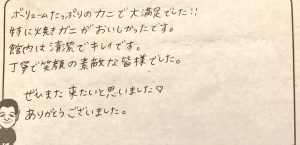 ボリュームたっぷりのカニで大満足でした!!
特に焼きガニがおいしかったです。
館内は清潔でキレイです。
丁寧で笑顔の素敵な皆様でした。
ぜひまた来たいと思いました♡
ありがとうございました。